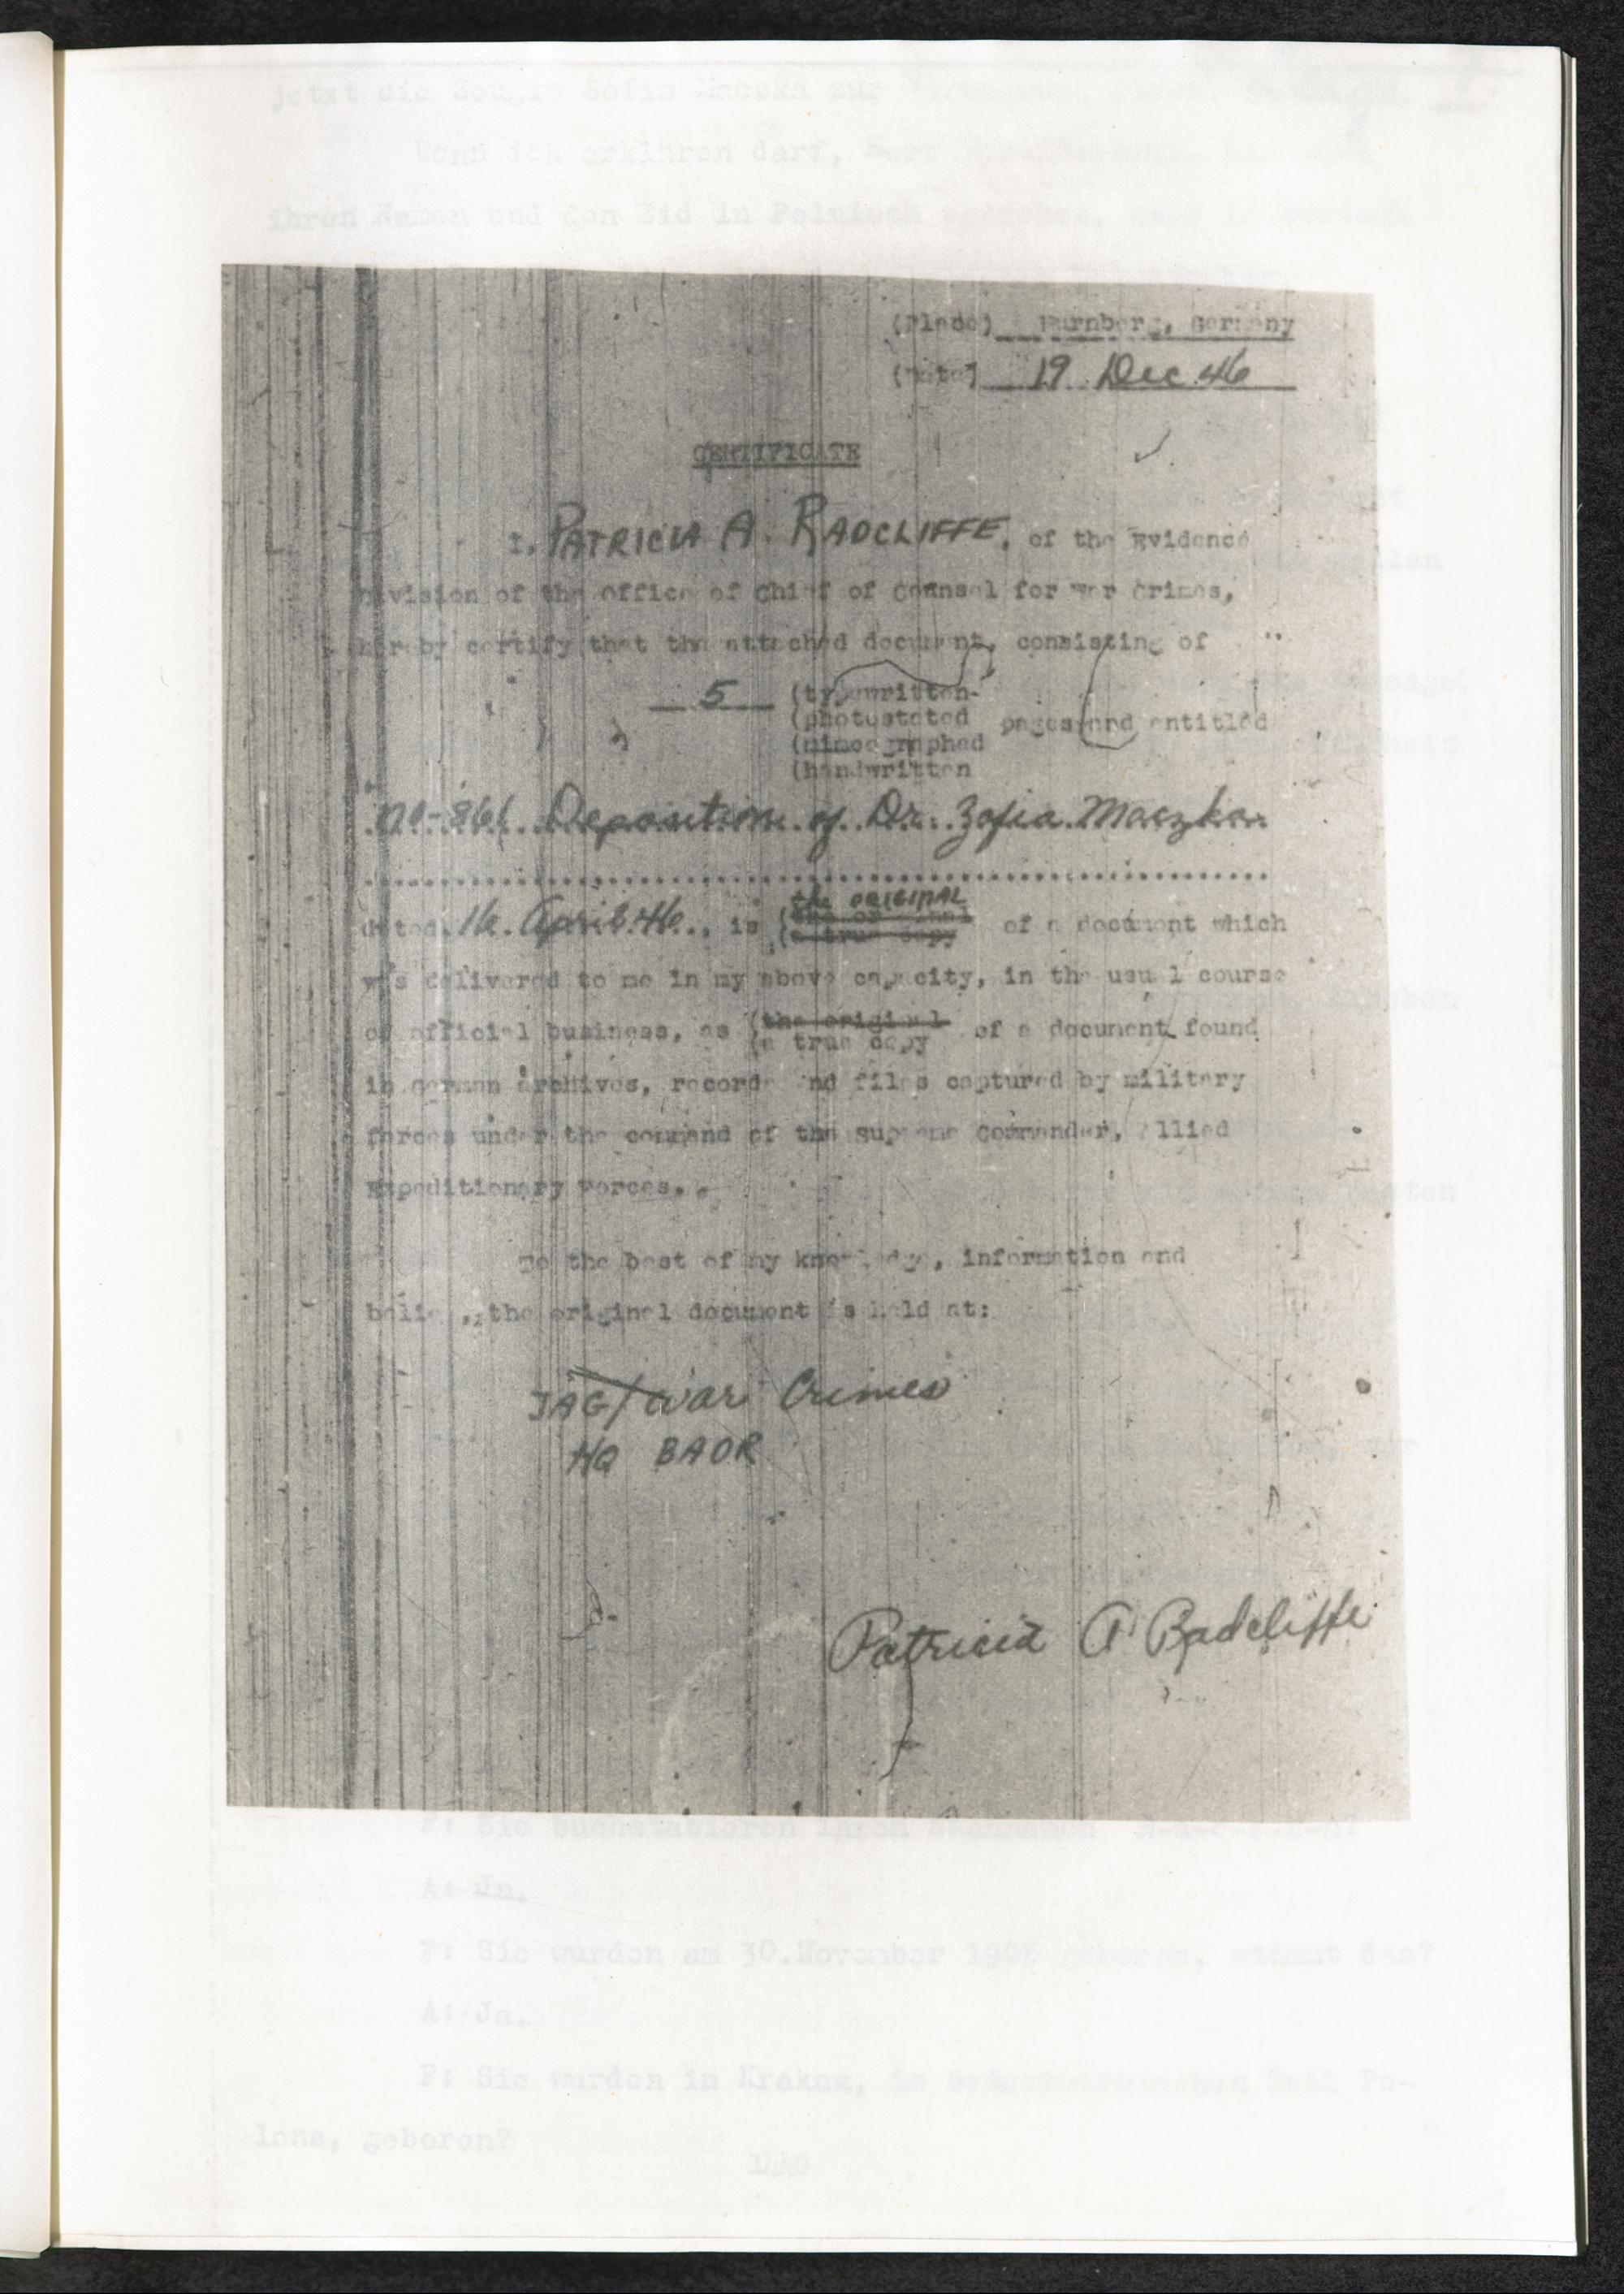 (Place) Nurnberg, Germany
(Date) 19 Dec 46
CERTIFICATE
I, PATRICIA A. RADCLIFFE, of the Evidence
Division of the office of Chief of Counsel for War Crimes,
hereby certify that the attached document, consisting of
5 (typewritten-
(photostated pages and entitled
(mimeographed
(handwritten
NO-861 Deposition of Dr. Zofia Maczka
the ORIGINAL
dated 16. April 46., is (the original of a document which
(a true copy
was delivered to me in my above capacity, in the usual course
of official business, as (the original of a document found
(a true copy
in german archives, records and files captured by military
forces under the command of the supreme Commander, Allied
Expeditionary Forces.
To the best of my knowledge, information and
belief, the original document is held at:
JAG/War Crimes
HQ BAOR
Patricia A Radcliffe
A: Ja.
F: Sie wurden am 30.November 1905 geboren, stimmt das?
A: Ja.
F: Sie wurden in Krakau, im Po-
lens, geboren?